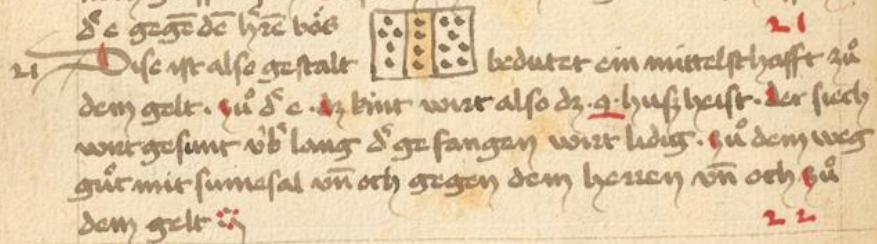 dͤ e gegē dē hͤrē boͤs 21
21 Dise ist also gestalt bedutet ein mittelsthafft zuͦ
dem gelt · zuͦ dͤ e · dz kint wirt also dz · 9 · huß heist · der siech
wirt gesunt vͤbͤ lang dͤ gefangen wirt lidig · zuͦ dem weg
guͦt mit sumesal vn̄ och gegen dem herren vn̄ och zuͦ
dem gelt 22